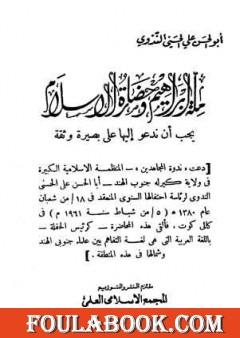 أبو الحسن علي الحسني الندوي
ملة إبراهيم وحضارة الإسلام
يجب أن ندعو إليها على بصيرة وثقة
[ دعت « ندوة المجاهدين » - المنظمة الاسلامية الكبيرة
في ولاية كيرله جنوب الهند - أبا الحسن علي الحسني
الندوي لرئاسة احتفالها السنوي المنعقد في ١٨ / من شعبان
عام ١٣٨٠ هـ (٥ / من شباط سنة ١٩٦١ م) في
كلي كوت، فألقى هذه المحاضرة - كرئيس الحفلة -
باللغة العربية التي هي لغة التفاهم بين علماء جنوبي الهند
وشمالها في هذه المنطقة. ]
ملتزم النشر والتوزيع
المجمع الإسلامي العلمي
FOULABOOK.COM